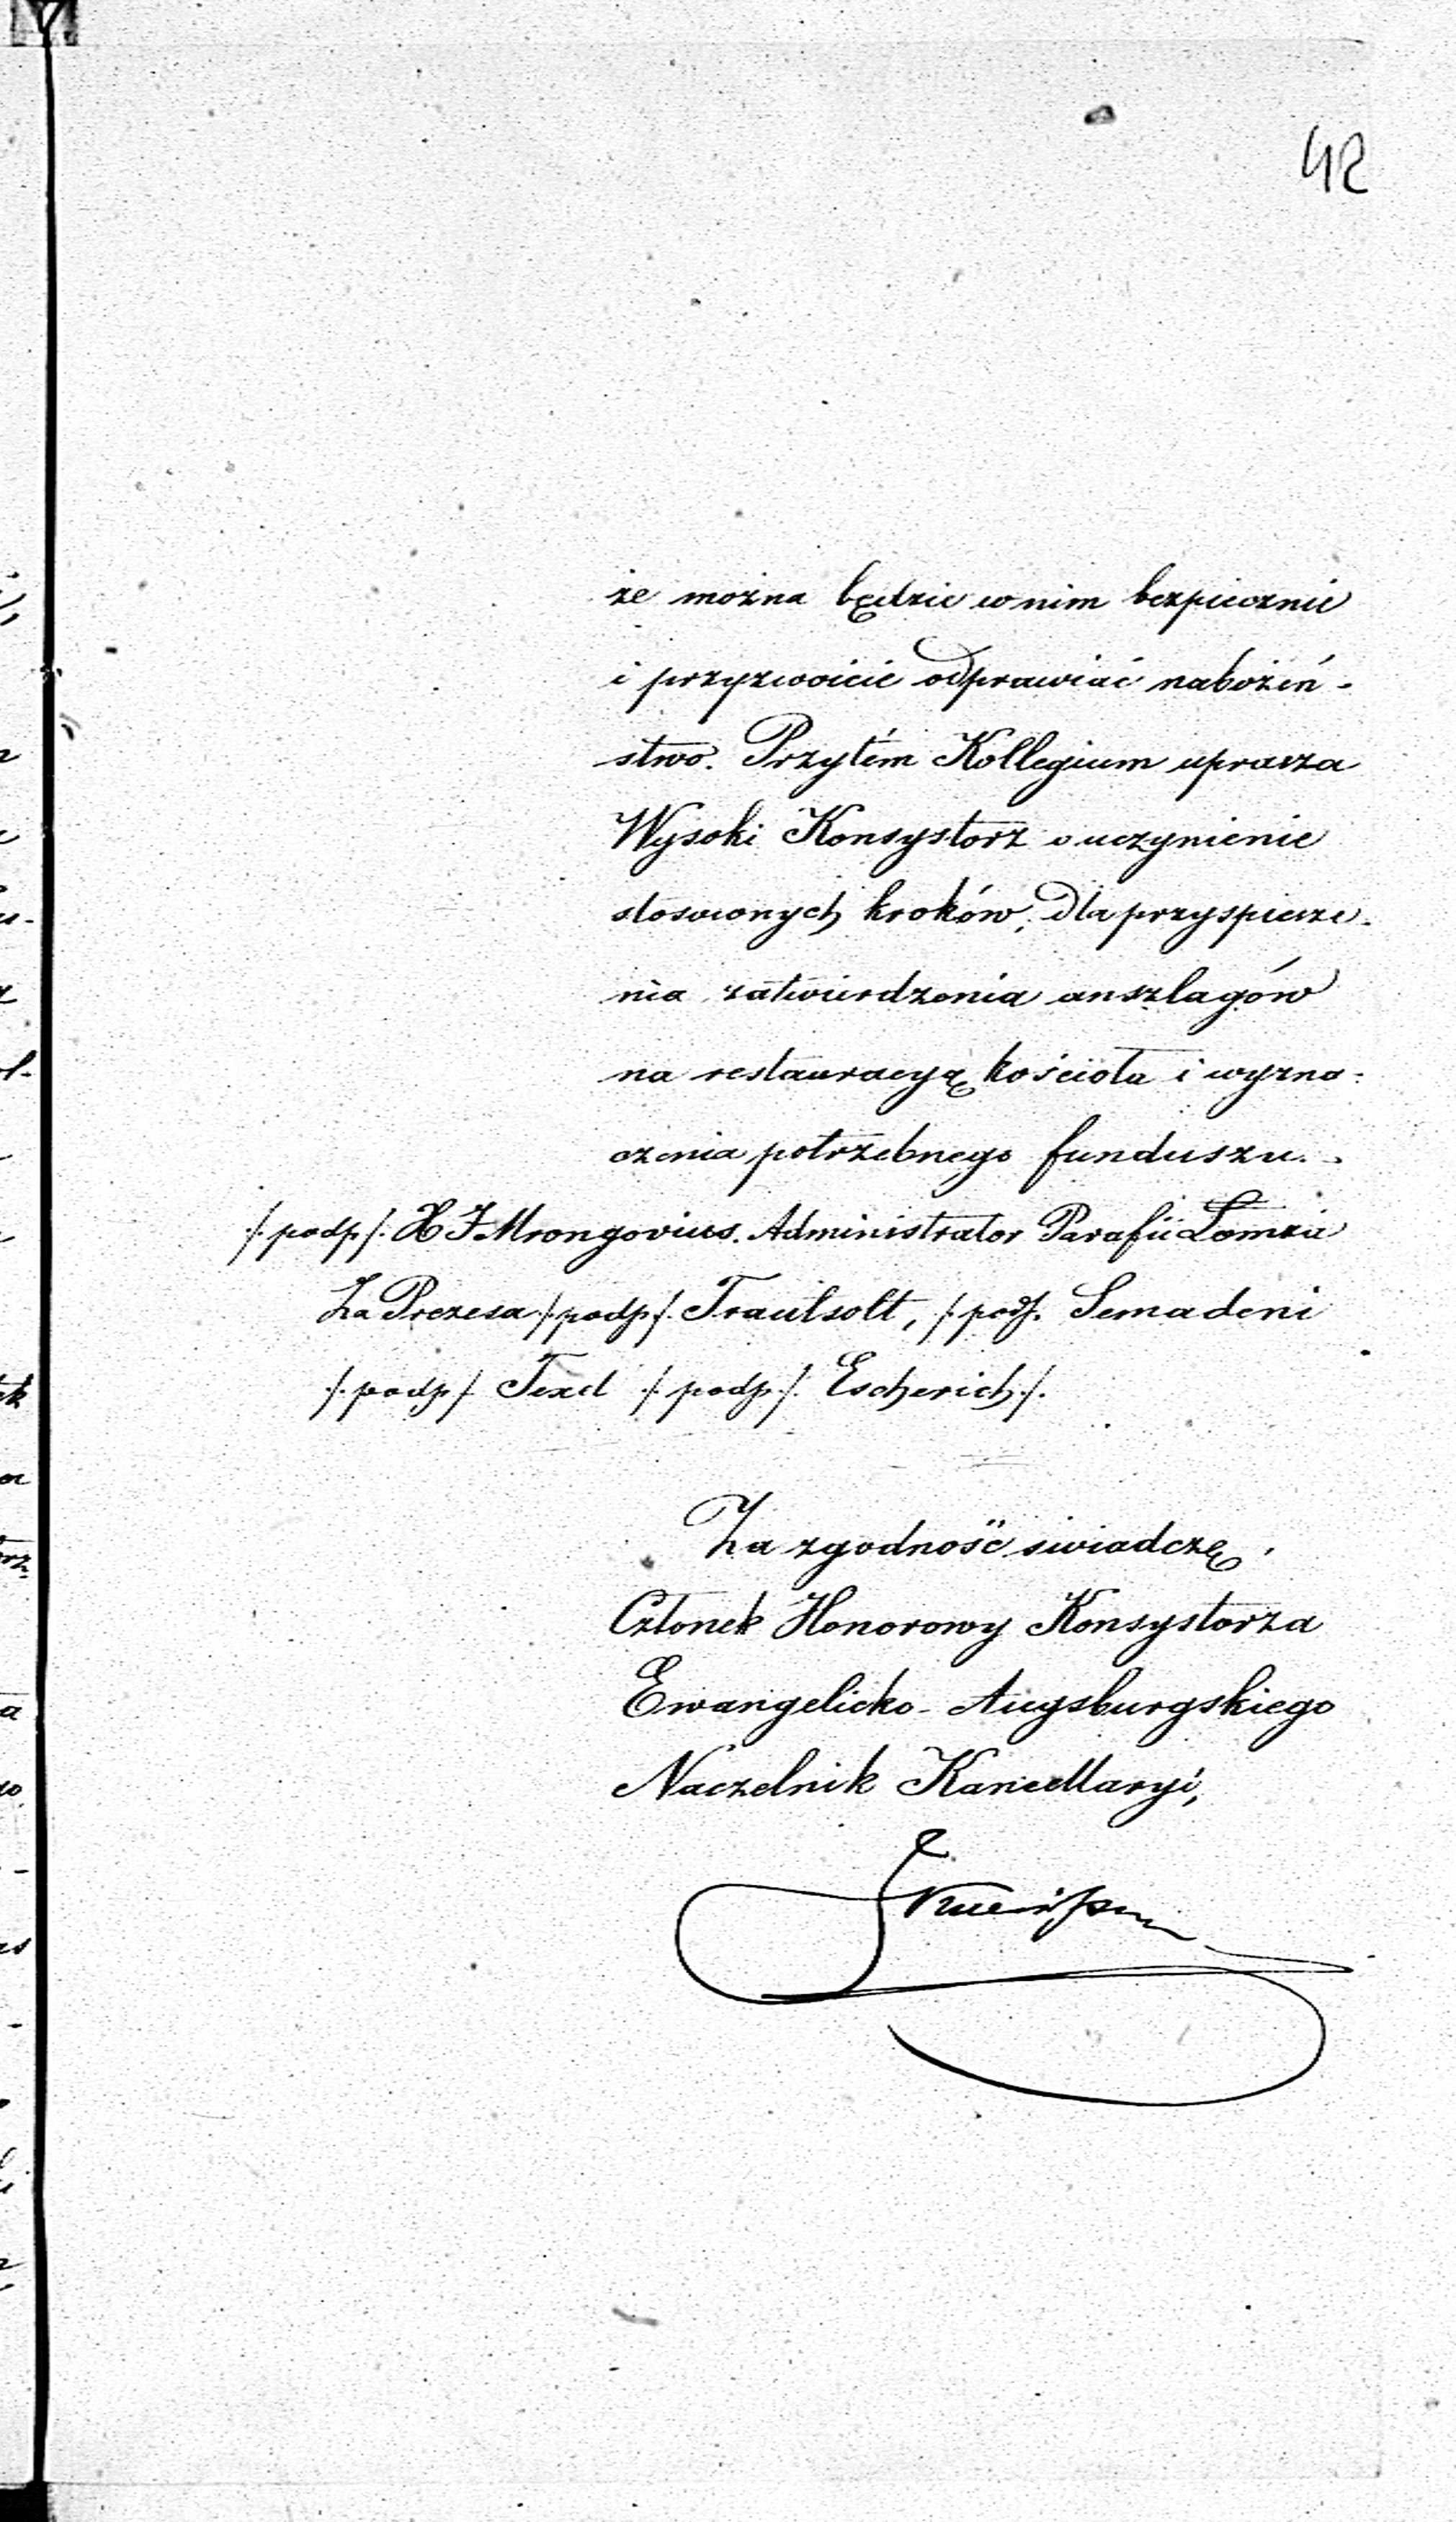 42
że można będzie w nim bezpiecznie
i przyzwoicie odprawiać nabożeń-
stwo. Przytém Kollegium uprasza
Wysoki Konsystorz o uczynienie
stosownych kroków, dla przyspiesze-
nia zatwierdzenia anszlagów
na restauracyą kościoła i wyzna-
czenia potrzebnego funduszu.
/. podp /. X J Mrongovius. Administrator Parafii Łomża
Za Prezesa /. podp /. Trautsolt, /. podp. Semadeni
/. podp /. Texd /. podp /. Escherich /.
Za zgodność świadczę
Członek Honorowy Konsystorza
Ewangelicko-Augsburgskiego
Naczelnik Kancellaryi,